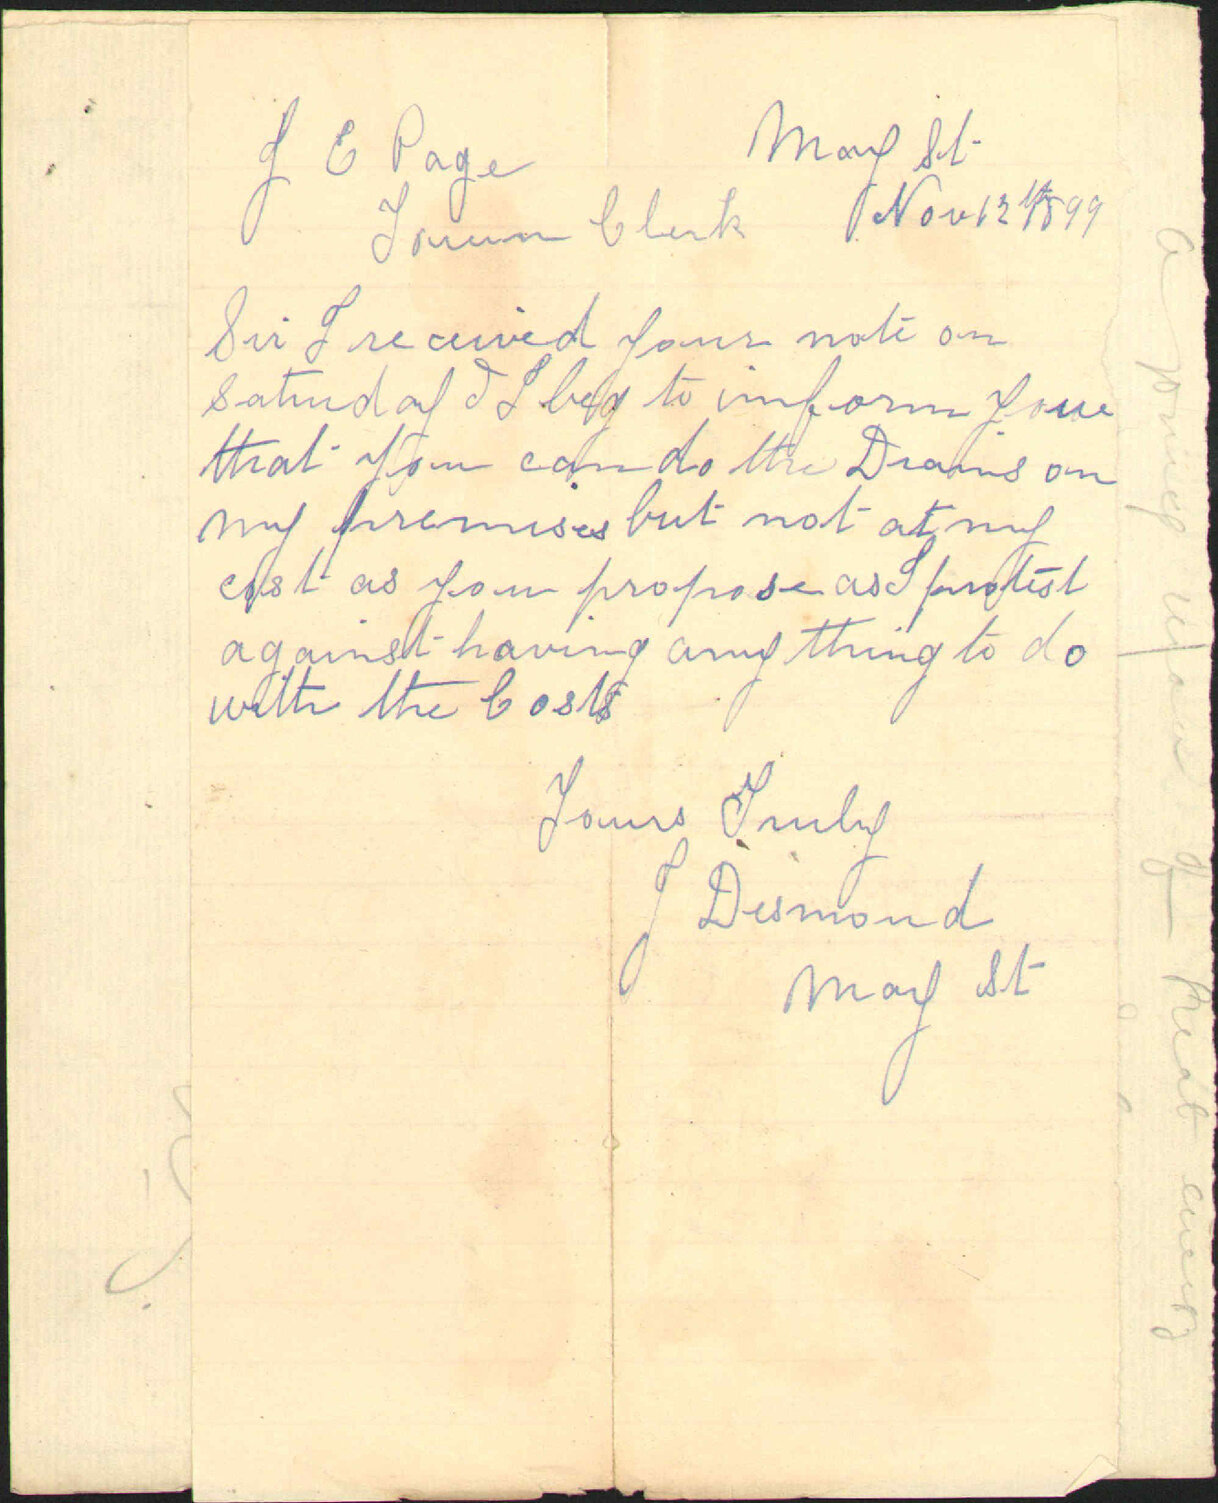 J E Page
May St
Town Clerk
Nov 12th 1899
Sir I received your note on
Saturday & I beg to imform youe
that you can do the Drains on
my premises but not at my
cost as you propose as I protest
against having any thing to do
with the Costs
Yours Truly
J Desmond
May St